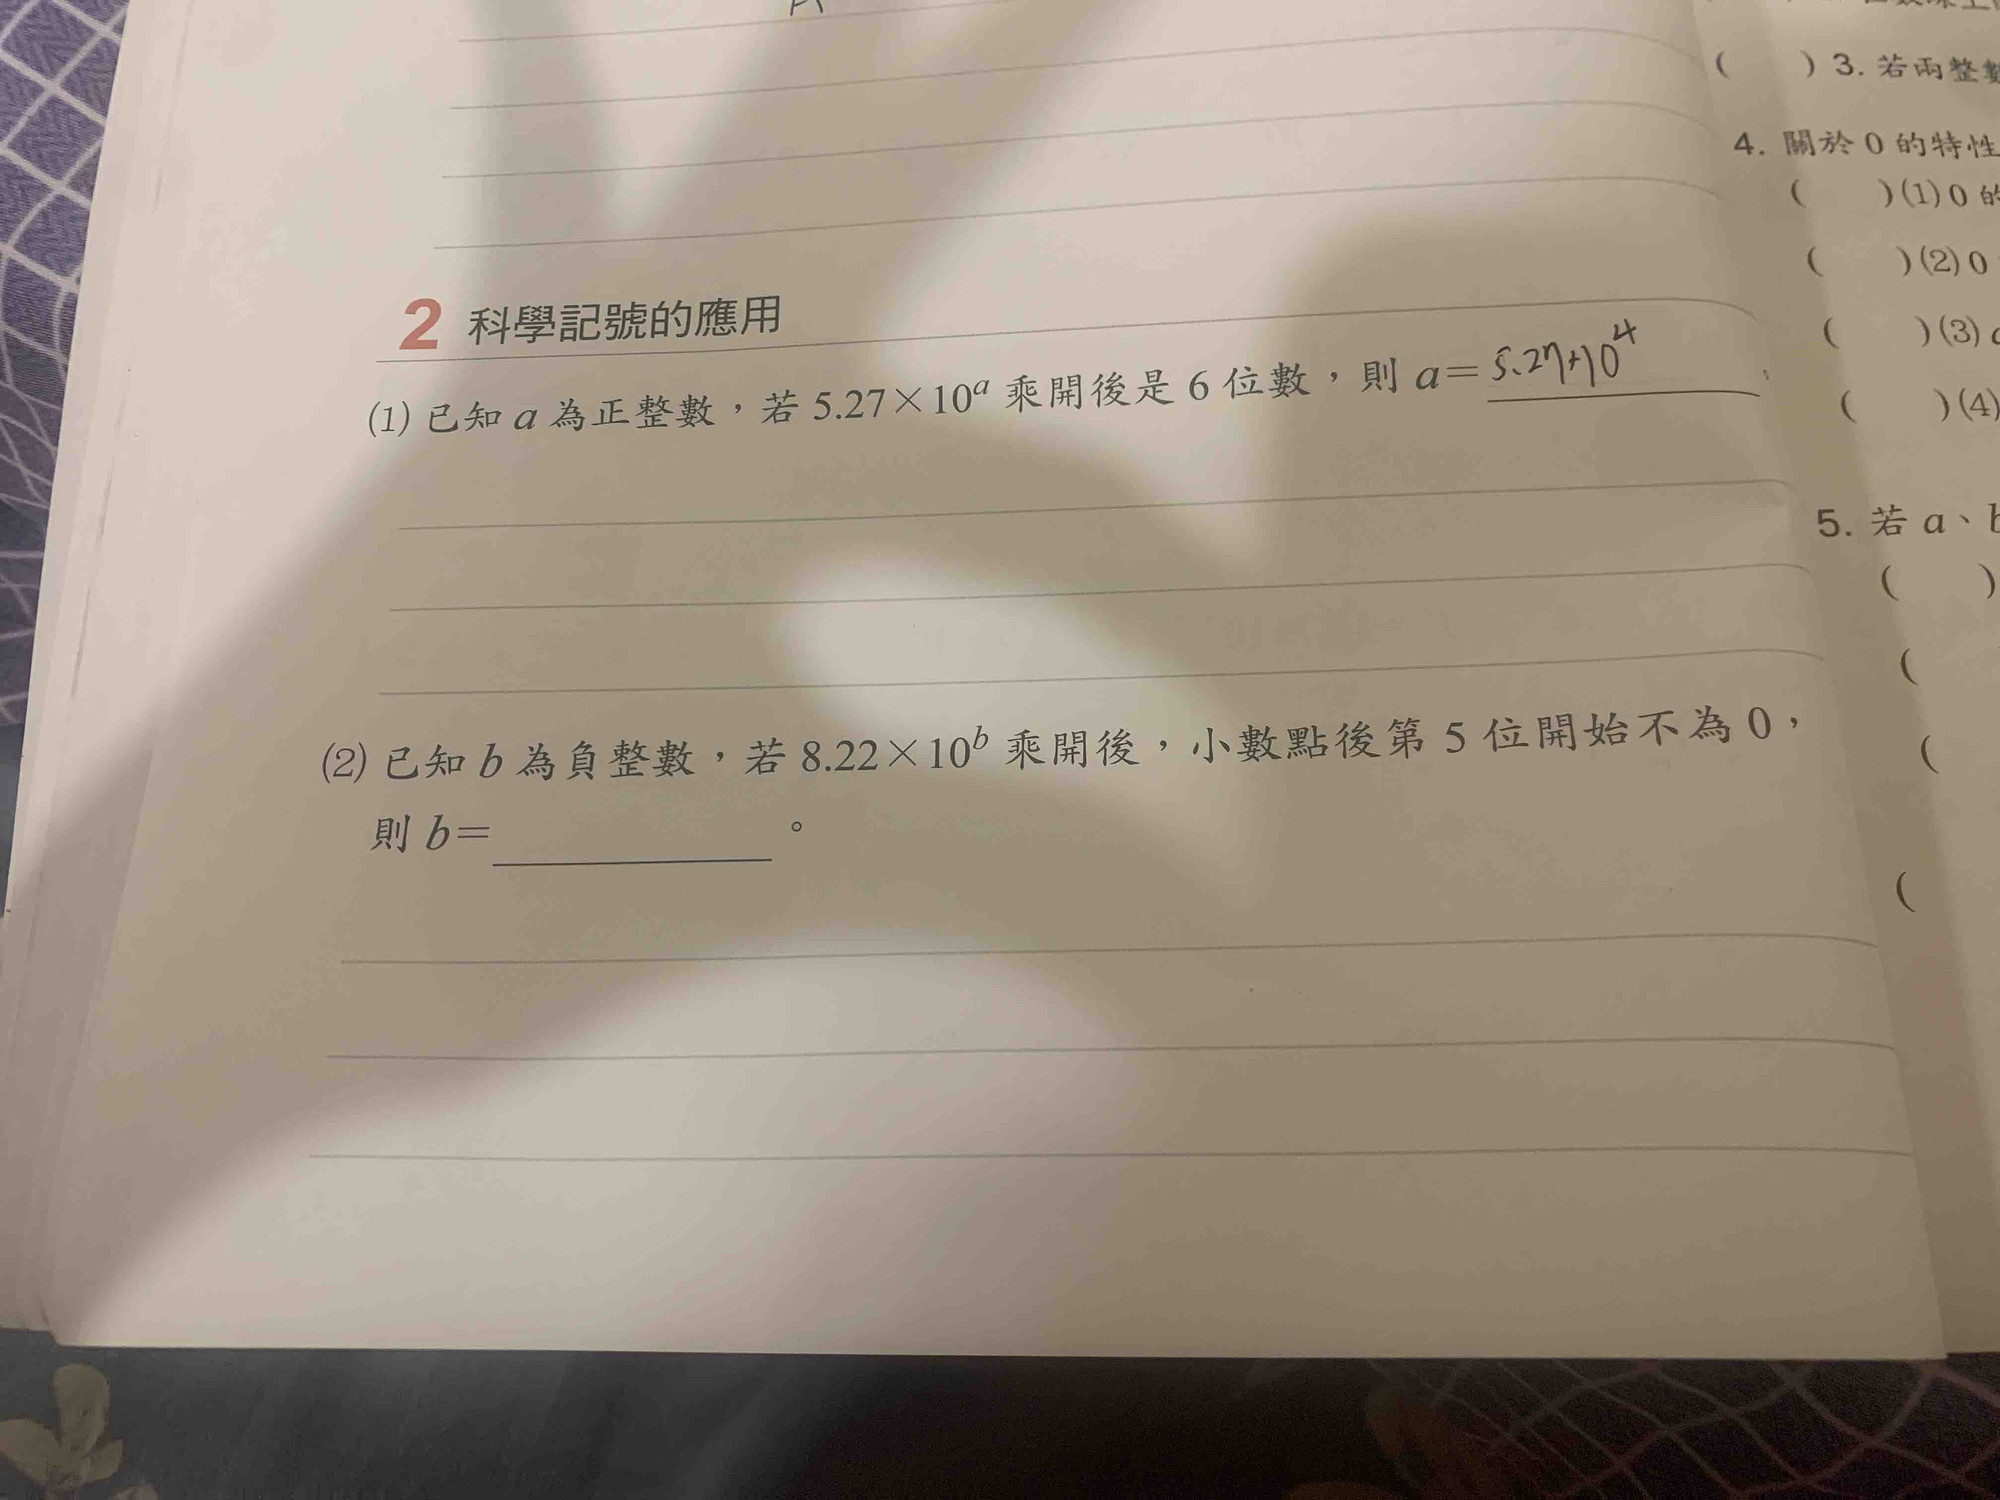 2 科學記號的應用
(1) 已知 a 為正整數，若 5.27×10ᵃ 乘開後是 6 位數，則 a= 5.27+10⁴
(2) 已知 b 為負整數，若 8.22×10ᵇ 乘開後，小數點後第 5 位開始不為 0，
則 b= 。
( ) 3. 若兩整
4. 關於 0 的特性
( )(1) 0 的
( )(2) 0
( )(3)
( )(4)
5. 若 a、
( )
(
(
(